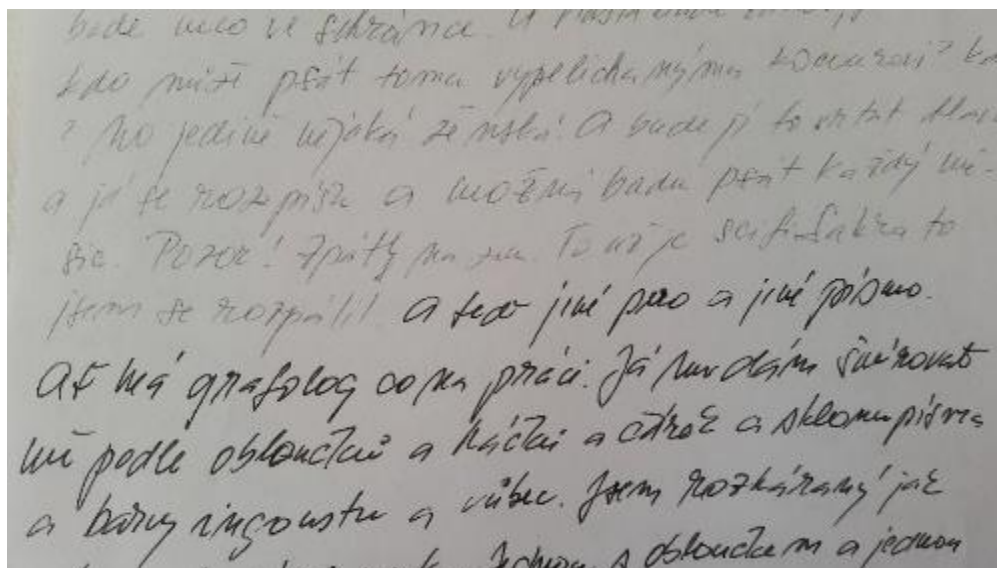 bude něco ve schránce. U
kdo může psát tomu vypelichanýmu kocourovi?
? No jedině nějaká ženská! A bude jí to vrtat
a já se rozepíšu a možná budu psát každý mě-
síc. Pozor! Zpátky na zem. To už je scifi. Sakra to
jsem se rozpálil! A teď jiné pero a jiné písmo.
Ať má grafolog co na práci. Já mu dám šmírovat
mě podle obloučků a háčků a čárek a sklonu písma
a barvy ingoustu a vůbec. Jsem rozháraný jak
jednou s obloučkem a jednou